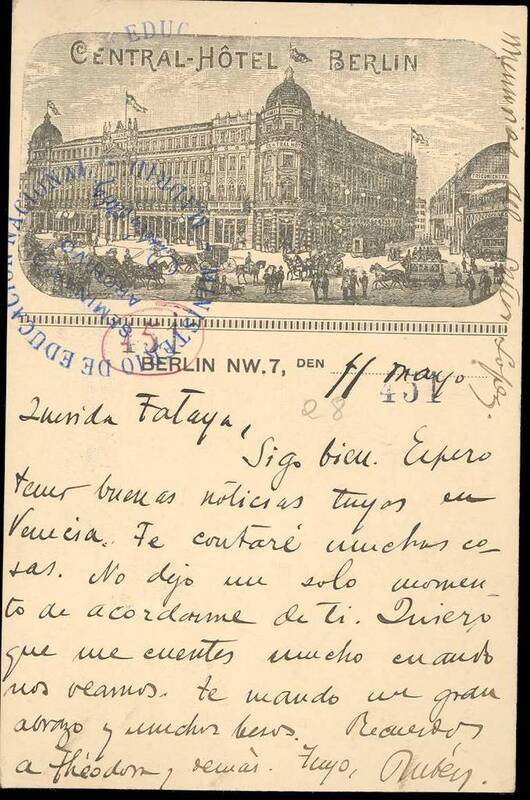 CENTRAL-HÔTEL BERLIN
MINISTERIO DE EDUCACION NACIONAL
MADRID
SEMINARIO
ARCHIVO
15
BERLIN NW.7, DEN 11 mayo
451
28
Querida Tataya,
Sigo bien. Espero
tener buenas noticias tuyas en
Venecia. Te contaré muchas co-
sas. No dejo un solo momen-
to de acordarme de ti. Quiero
que me cuentes mucho cuando
nos veamos. Te mando un gran
abrazo y muchos besos. Recuerdos
a Théodora y demás. Tuyo, Rubén.
López.